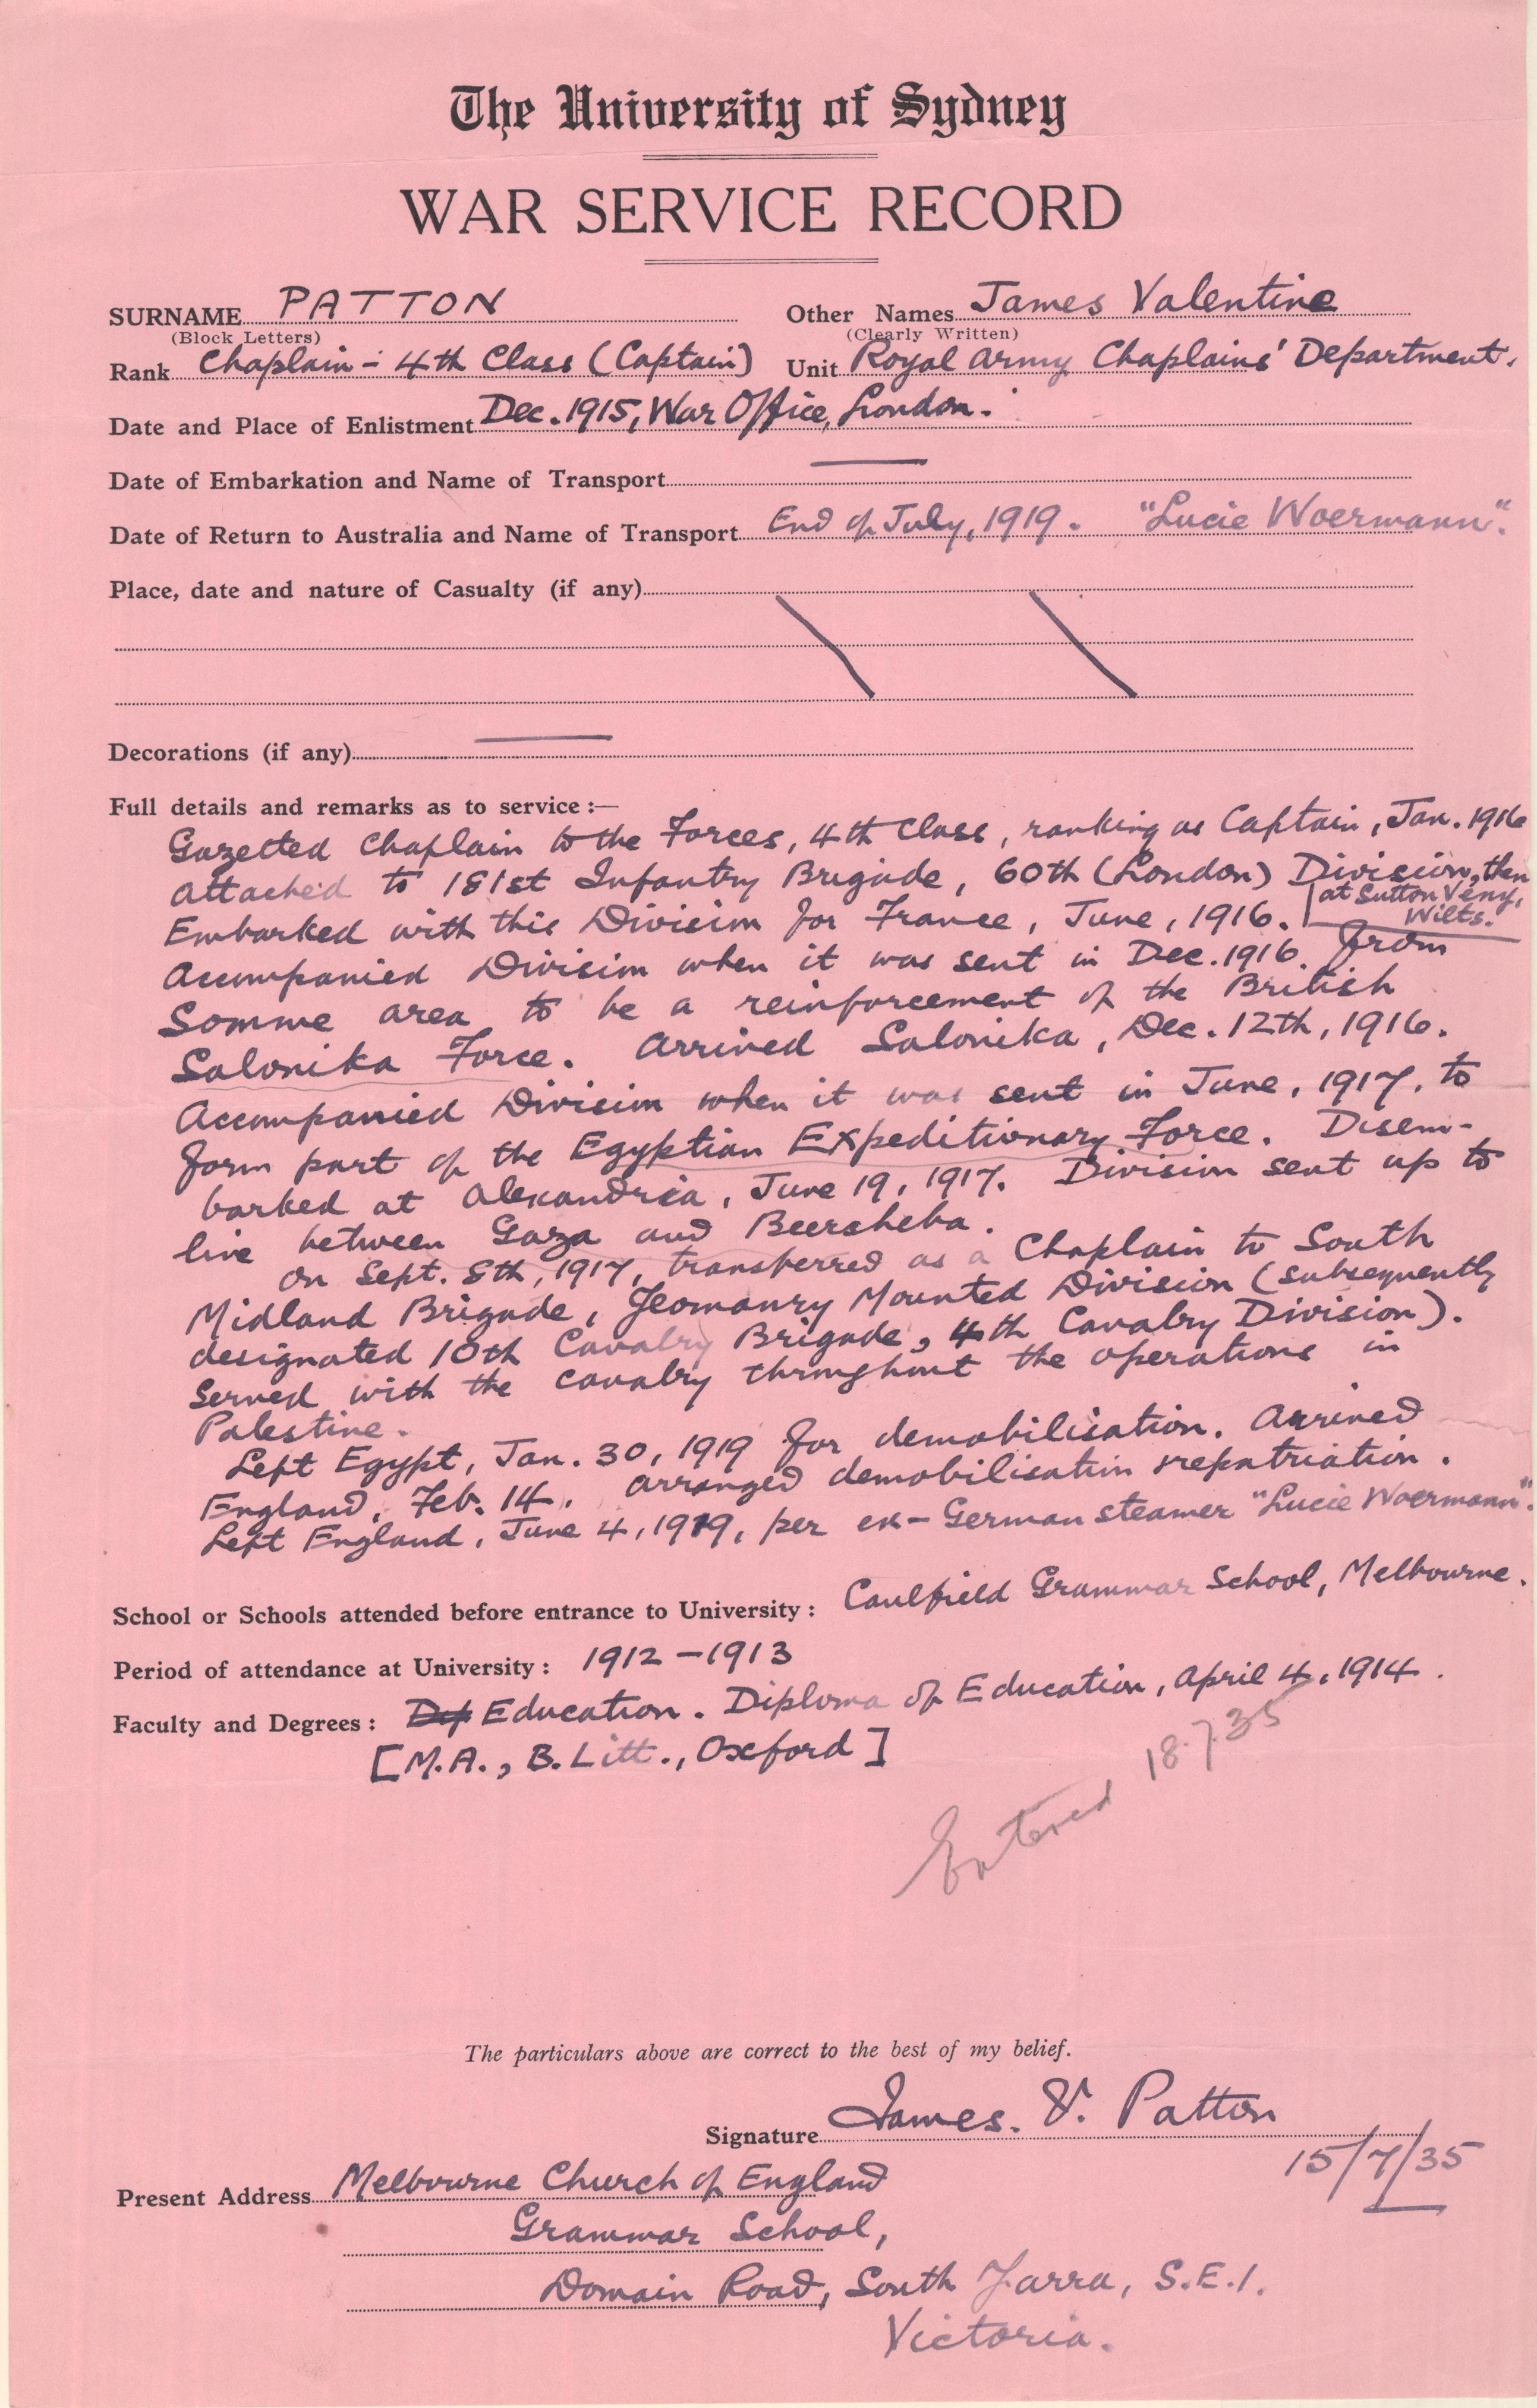 The University of Sydney
WAR SERVICE RECORD
SURNAME PATTON Other Names James Valentine
(Block Letters) (Clearly Written)
Rank Chaplain - 4th Class (Captain) Unit Royal Army Chaplains' Department.
Date and Place of Enlistment Dec. 1915, War Office, London.
Date of Embarkation and Name of Transport —
Date of Return to Australia and Name of Transport End of July, 1919. "Lucie Woermann".
Place, date and nature of Casualty (if any)
Decorations (if any) —
Full details and remarks as to service:—
Gazetted Chaplain to the Forces, 4th Class, ranking as Captain, Jan. 1916
attached to 181st Infantry Brigade, 60th (London) Division, then
at Sutton Veny, Wilts.
Embarked with this Division for France, June, 1916.
Accompanied Division when it was sent in Dec. 1916. from
Somme area to be a reinforcement of the British
Salonika Force. Arrived Salonika, Dec. 12th, 1916.
Accompanied Division when it was sent in June, 1917, to
form part of the Egyptian Expeditionary Force. Disem-
barked at Alexandria, June 19, 1917. Division sent up to
line between Gaza and Beersheba.
On Sept. 8th, 1917, transferred as a Chaplain to South
Midland Brigade, Yeomanry Mounted Division (subsequently
designated 10th Cavalry Brigade, 4th Cavalry Division).
Served with the cavalry throughout the operations in
Palestine.
Left Egypt, Jan. 30, 1919 for demobilisation. Arrived
England, Feb. 14. Arranged demobilisation & repatriation.
Left England, June 4, 1919, per ex-German steamer "Lucie Woermann".
School or Schools attended before entrance to University: Caulfield Grammar School, Melbourne.
Period of attendance at University: 1912-1913
Faculty and Degrees: Dip Education. Diploma of Education, April 4, 1914.
[M.A., B. Litt., Oxford]
Entered 18.7.35
The particulars above are correct to the best of my belief.
Signature James. V. Patton
15/7/35
Present Address Melbourne Church of England
Grammar School,
Domain Road, South Yarra, S.E.1.
Victoria.